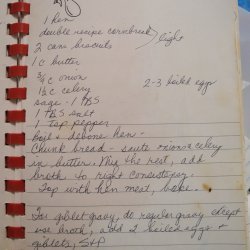 1 hen
double recipe cornbread > light
2 cans biscuits
1 c butter
3/4 c onion
1 1/2 c celery
2-3 boiled eggs
sage - 1 TBS
1 TBS salt
1 tsp pepper
Boil & debone hen -
Chunk bread - saute onion & celery
in butter. Mix the rest, add
broth to right consistency.
Top with hen meat, bake.
For giblet gravy, do regular gravy except
use broth, add 2 boiled eggs &
giblets, S+P